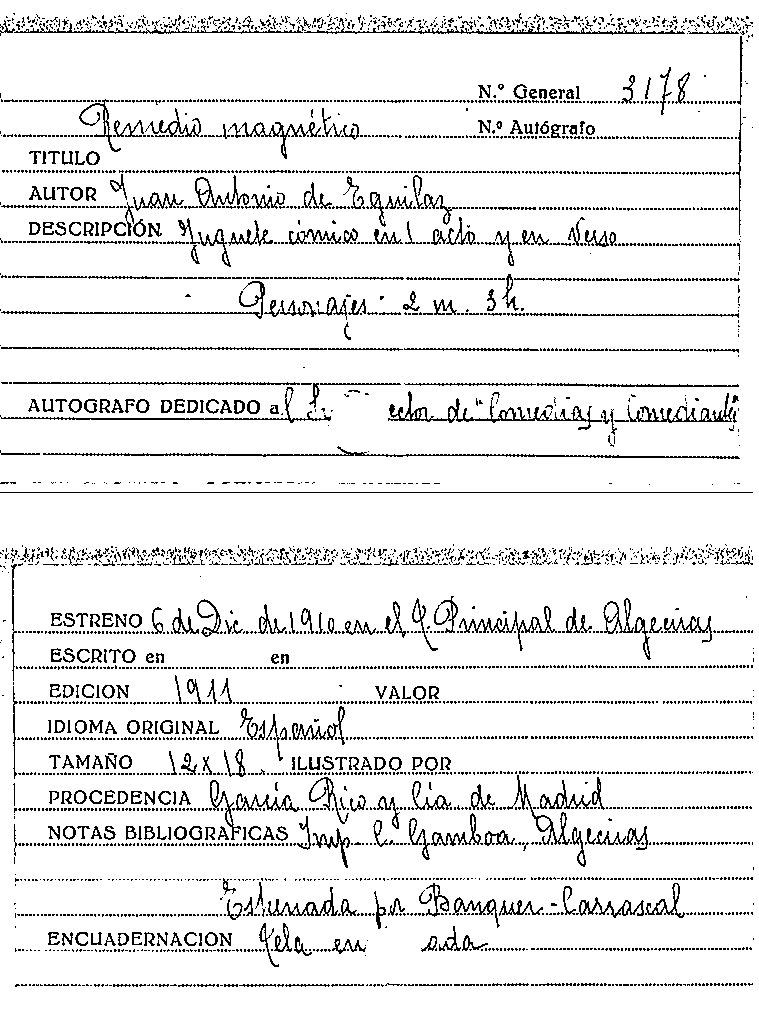 N.º General 3178
Remedio magnético N.º Autógrafo
TITULO
AUTOR Juan Antonio de Eguilaz
DESCRIPCIÓN Juguete cómico en 1 acto y en verso
Personajes: 2 m. 3 h.
AUTOGRAFO DEDICADO al Sr. ector de "Comedias y Comediantes"
ESTRENO 6 de Dic de 1910 en el T. Principal de Algeciras
ESCRITO en en
EDICION 1911 VALOR
IDIOMA ORIGINAL Español
TAMAÑO 12 x 18. ILUSTRADO POR
PROCEDENCIA García Rico y Cía de Madrid
NOTAS BIBLIOGRAFICAS Imp. C. Gamboa, Algeciras
Estrenada por Banquer-Carrascal
ENCUADERNACION Tela en ada